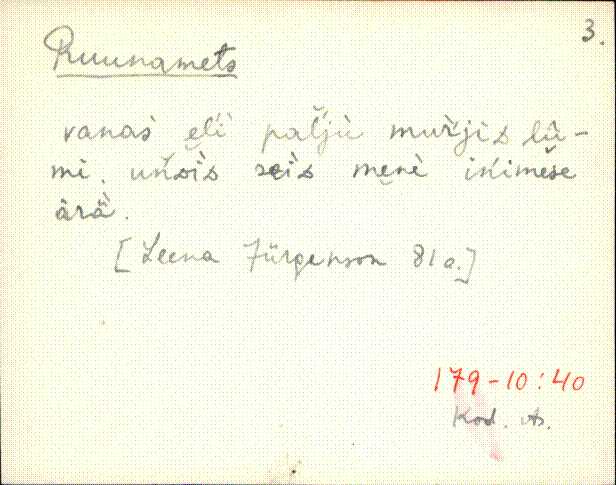 3.
Ruunamets
vanaś eli paľju murjis lu-
mi. unsis seis meni inimese
ärä.
[Leena Jürgenson 81 a.]
179-10:40
Kod. As.